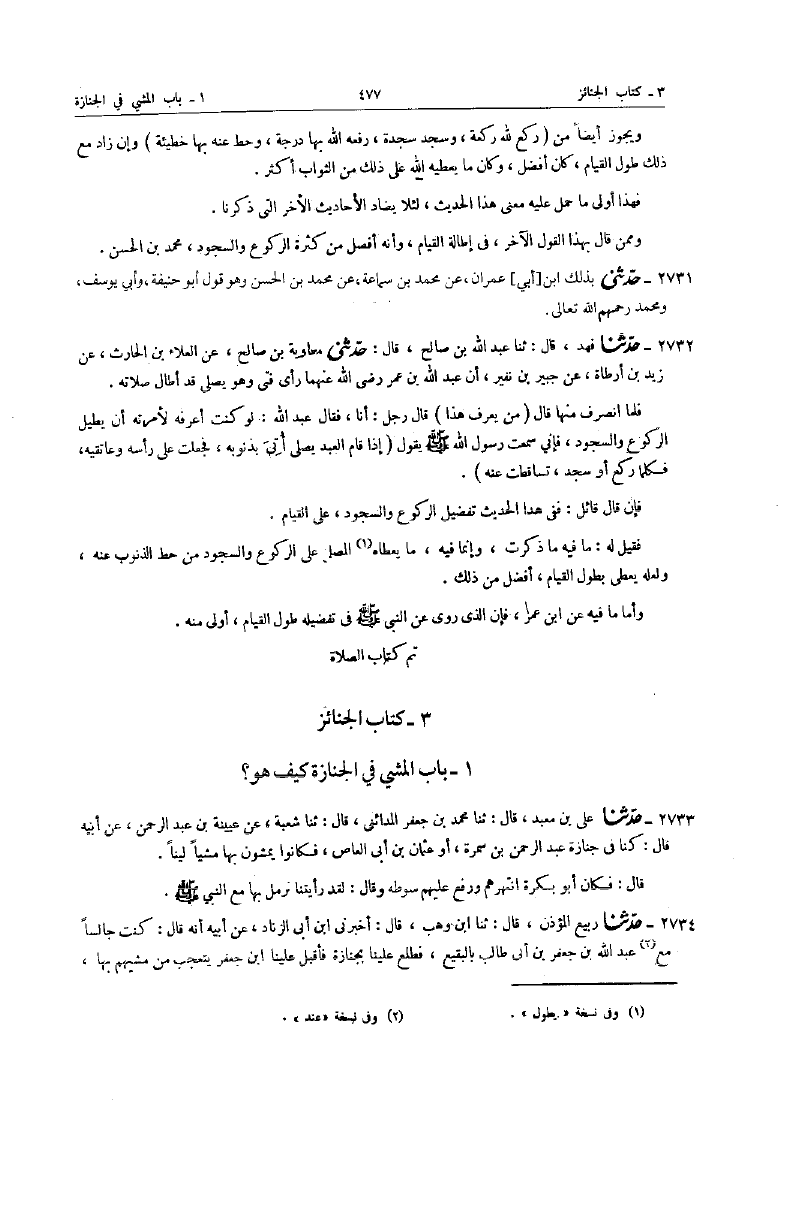 ٣ ـ كتاب الجنائز ٤٧٧ ١ ـ باب المشي في الجنازة
ويجوز أيضاً من ( ركع لله ركعة ، وسجد سجدة ، رفعه الله بها درجة ، وحط عنه بها خطيئة ) وإن زاد مع
ذلك طول القيام ، كان أفضل ، وكان ما يعطيه الله على ذلك من الثواب أكثر .
فهذا أولى ما حمل عليه معنى هذا الحديث ، لئلا يضاد الأحاديث الأخر التى ذكرنا .
وممن قال بهذا القول الآخر ، فى إطالة القيام ، وأنه أفضل من كثرة الركوع والسجود ، محمد بن الحسن .
٢٧٣١ ـ حدثنى بذلك ابن[أبي] عمران ،عن محمد بن سماعة ،عن محمد بن الحسن وهو قول أبو حنيفة ،وأبي يوسف،
ومحمد رحمهم الله تعالى.
٢٧٣٢ ـ حدثنا فهد ، قال : ثنا عبد الله بن صالح ، قال : حدثنى معاوية بن صالح ، عن العلاء بن الحارث ، عن
زيد بن أرطاة ، عن جبير بن نفير ، أن عبد الله بن عمر رضى الله عنهما رأى فتى وهو يصلي قد أطال صلاته .
فلما انصرف منها قال ( من يعرف هذا ) قال رجل : أنا ، فقال عبد الله : لو كنت أعرفه لأمرته أن يطيل
الركوع والسجود ، فإني سمعت رسول الله ﷺ يقول ( إذا قام العبد يصلى أُتِيَ بذنوبه ، فجعلت على رأسه وعاتقيه،
فكلما ركع أو سجد ، تساقطت عنه ) .
فإن قال قائل : ففى هدا الحديث تفضيل الركوع والسجود ، على القيام .
فقيل له : ما فيه ما ذكرت ، وإنما فيه ، ما يعطاه(١) المصلى على الركوع والسجود من حط الذنوب عنه ،
ولعله يعطى بطول القيام ، أفضل من ذلك .
وأما ما فيه عن ابن عمر ، فإن الذى روى عن النبي ﷺ فى تفضيله طول القيام ، أولى منه .
تم كتاب الصلاة
٣ ـ كتاب الجنائز
١ ـ باب المشي في الجنازة كيف هو؟
٢٧٣٣ ـ حدثنا على بن معبد ، قال : ثنا محمد بن جعفر المدائنى ، قال : ثنا شعبة ، عن عيينة بن عبد الرحمن ، عن أبيه
قال : كنا فى جنازة عبد الرحمن بن سمرة ، أو عثمان بن أبى العاص ، فكانوا يمشون بها مشياً ليناً .
قال : فكان أبو بكرة انتهرهم ورفع عليهم سوطه وقال : لقد رأيتنا نرمل بها مع النبي ﷺ .
٢٧٣٤ ـ حدثنا ربيع المؤذن ، قال : ثنا ابن وهب ، قال : أخبرنى ابن أبى الزناد ، عن أبيه أنه قال : كنت جالساً
مع(٢) عبد الله بن جعفر بن أبى طالب بالبقيع ، فطلع علينا بجنازة فأقبل علينا ابن جعفر يتعجب من مشيهم بها ،
(١) وفى نسخة « يطول » . (٢) وفى نسخة «عند» .